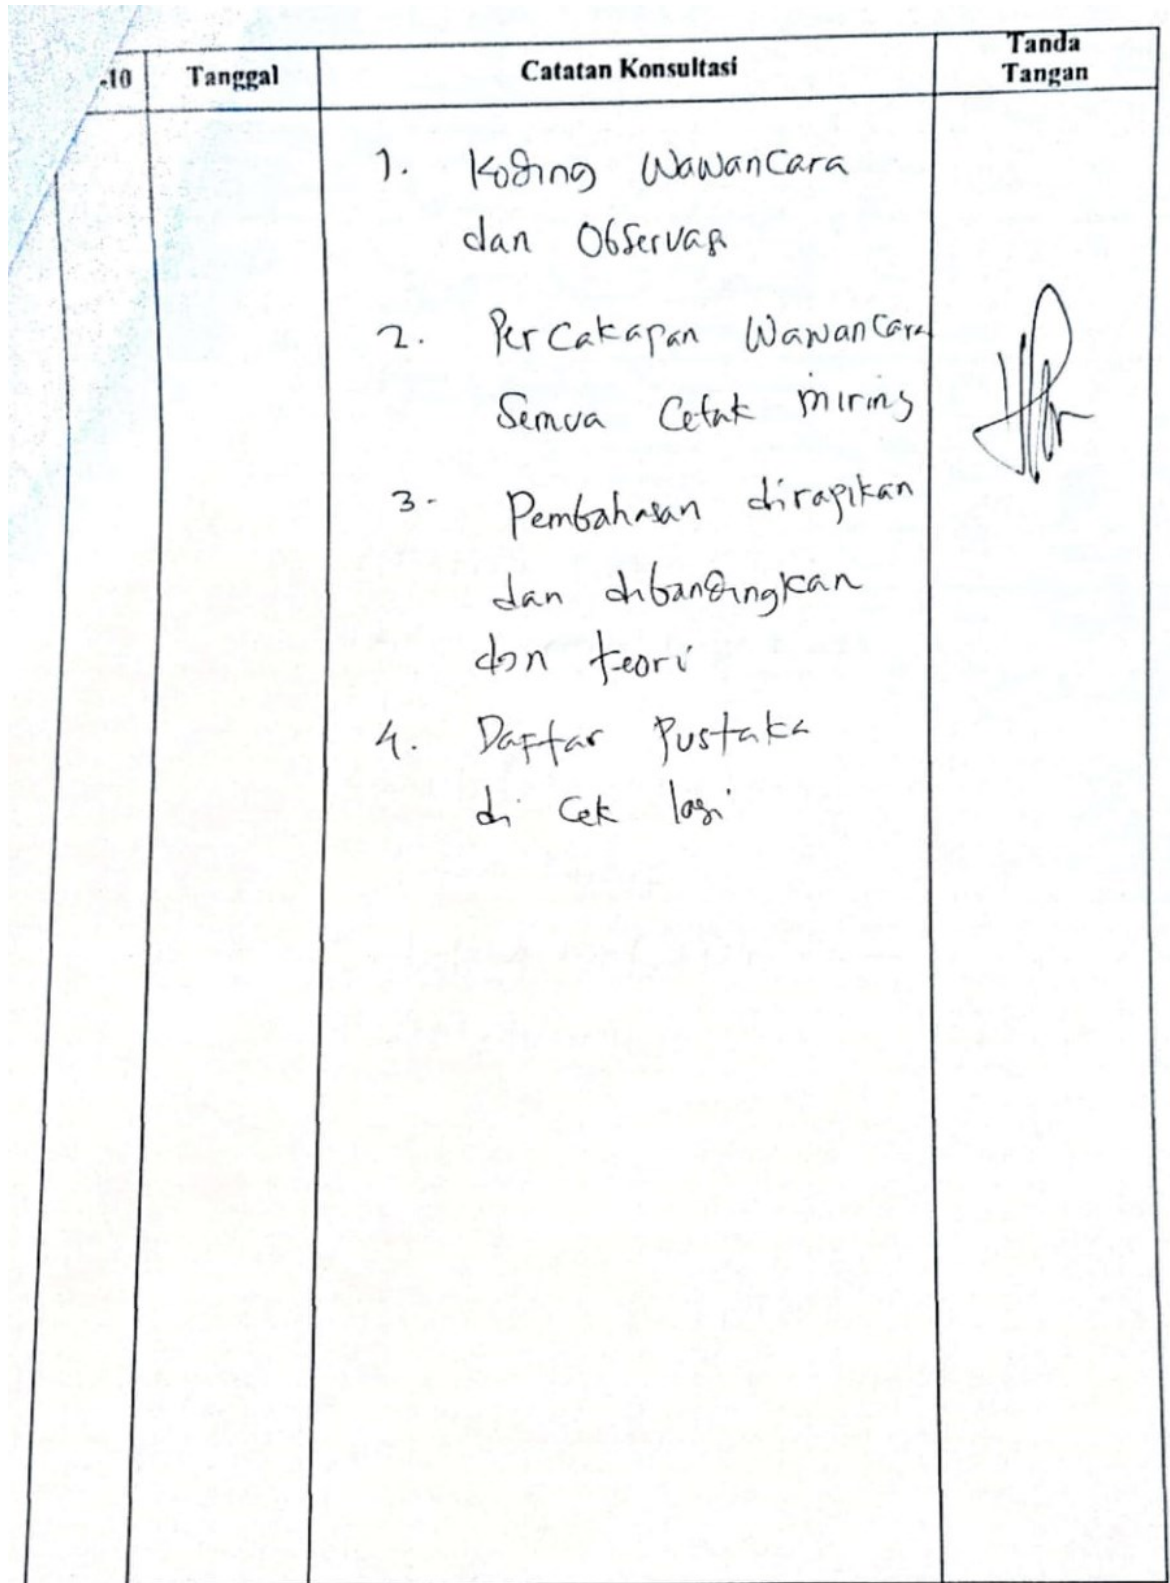 Tanggal
Catatan Konsultasi
Tanda
Tangan
1. Koding Wawancara
dan Observasi
2. Percakapan Wawancara
Semua Cetak miring
3. Pembahasan dirapikan
dan dibandingkan
dgn teori
4. Daftar Pustaka
di Cek lagi